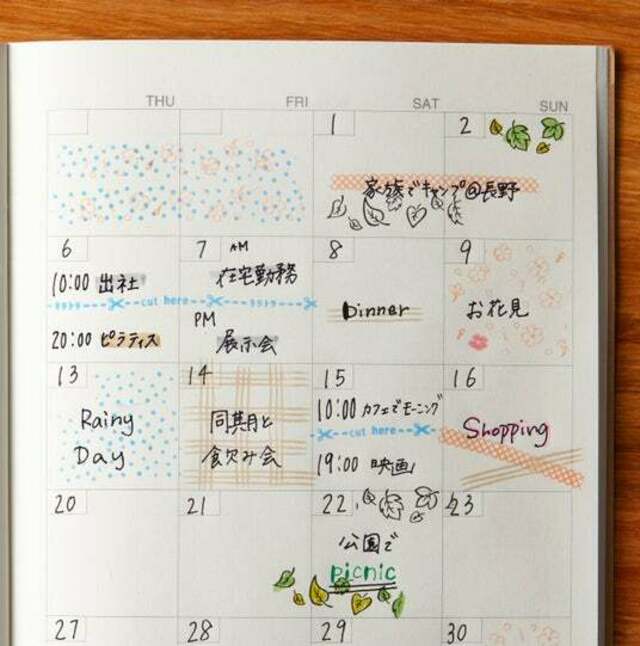 THU FRI SAT SUN
1 2
家族でキャンプ@長野
6 7 AM 8 9
10:00 出社 在宅勤務
cut here
Dinner お花見
20:00 ピラティス PM 展示会
13 14 15 16
Rainy Day
同期と
飲み会
10:00 カフェでモーニング
cut here
19:00 映画
Shopping
20 21 22 23
公園で
picnic
27 28 29 30